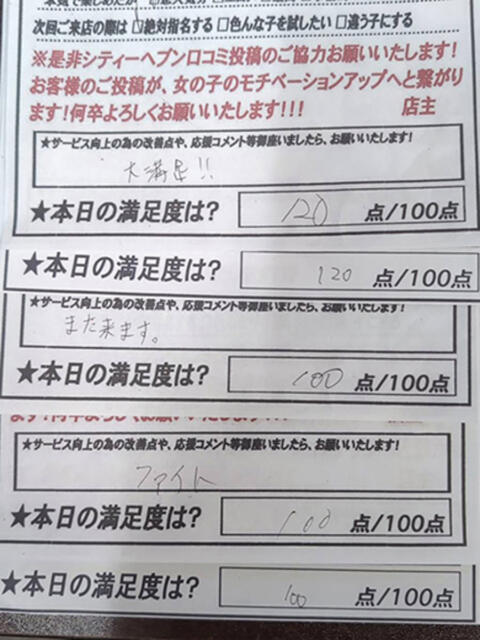 次回ご来店の際は □絶対指名する □色んな子を試したい □違う子にする
※是非シティーヘブン口コミ投稿のご協力お願いいたします!
お客様のご投稿が、女の子のモチベーションアップへと繋がり
ます!何卒よろしくお願いいたします!!! 店主
★サービス向上の為の改善点や、応援コメント等御座いましたら、お願いいたします!
大満足!!
★本日の満足度は? 120 点/100点
★本日の満足度は? 120 点/100点
★サービス向上の為の改善点や、応援コメント等御座いましたら、お願いいたします!
また来ます。
★本日の満足度は? 100 点/100点
★サービス向上の為の改善点や、応援コメント等御座いましたら、お願いいたします!
ファイト
★本日の満足度は? 100 点/100点
★本日の満足度は? 100 点/100点